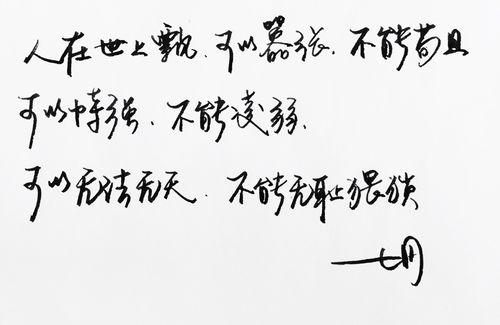 人在世上飘.可以嚣张.不能苟且
可以恃强.不能凌弱.
可以无法无天.不能无耻猥琐
七月